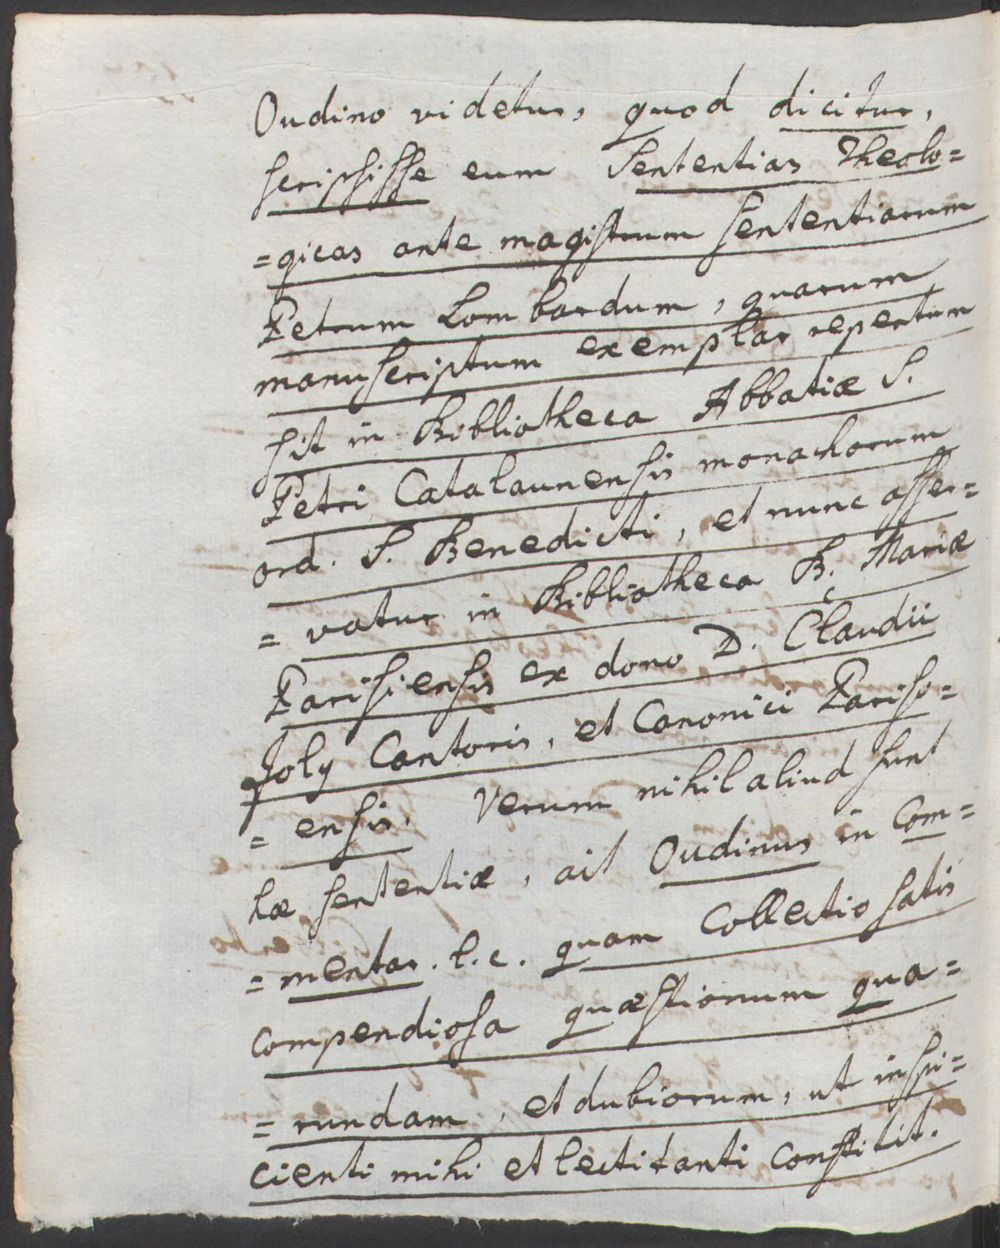 Oudino videtur, quod dicitur,
scripsisse eum Sententias Theolo=
=gicas ante magistrum sententiarum
Petrum Lombardum, quarum
manuscriptum exemplar repertum
sit in Bibliotheca Abbatiæ S.
Petri Catalaunensis monachorum
ord. S. Benedicti, et nunc asser=
=vatur in Bibliotheca B. Mariæ
Parisiensis ex dono D. Claudii
Joly Cantoris, et Canonici Pariso=
=ensis. Verum nihil aliud sunt
hæ sententiæ, ait Oudinus in Com=
=mentar. l. c. quam Collectio satis
compendiosa quæstionum qua=
=rundam, et dubiorum, ut inspi=
cienti mihi et lectitanti constitit.